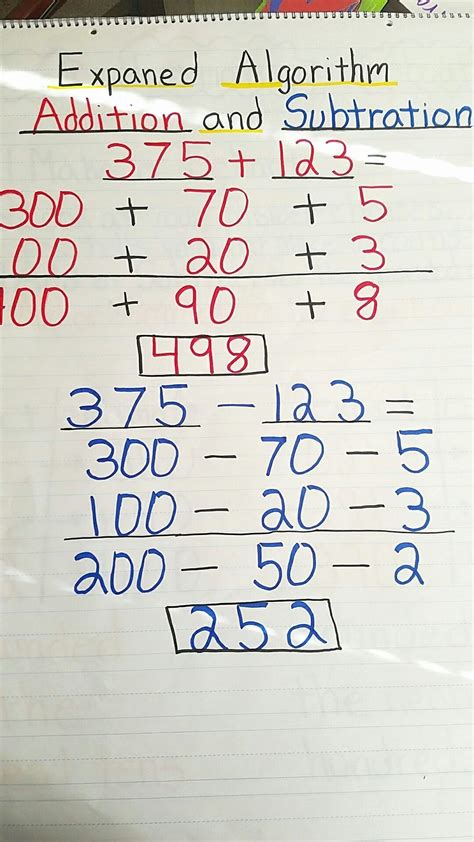 Expaned Algorithm
Addition and Subtration
375 + 123 =
300 + 70 + 5
00 + 20 + 3
400 + 90 + 8
498
375 - 123 =
300 - 70 - 5
100 - 20 - 3
200 - 50 - 2
252